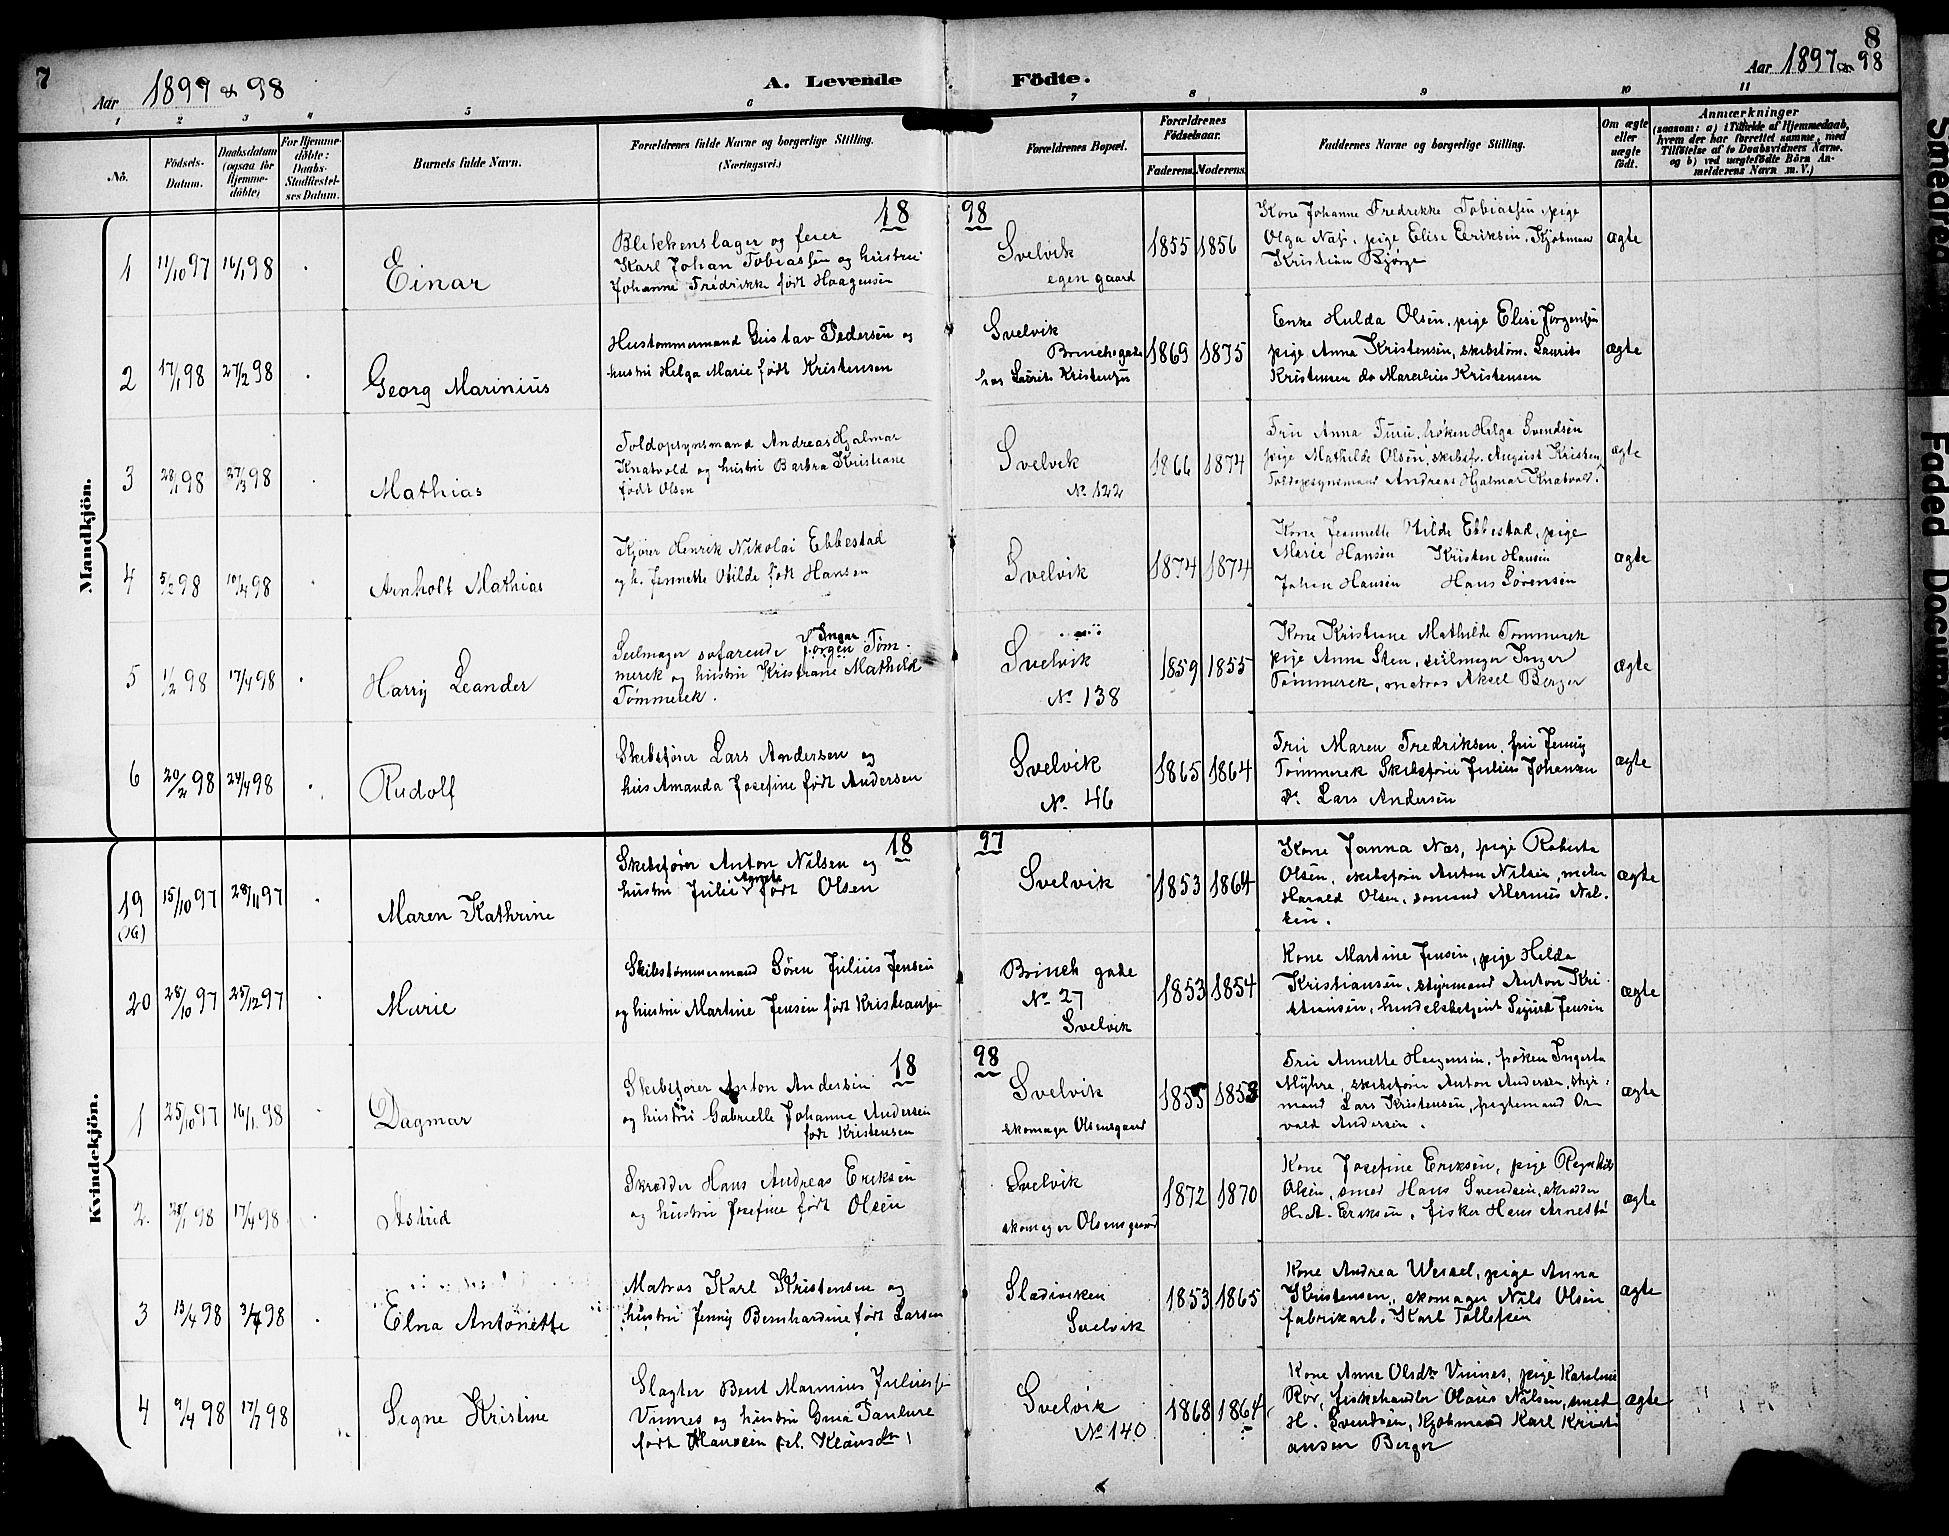 7
Aar 1897 & 98
A. Levende Fødte.
8
Aar 1897 & 98
1 2 3 4 5 6 7 8 9 10 11
No.
Fødsels-
Datum.
Daabsdatum
(ogsaa for
Hjemme-
døbte)
For Hjemme-
døbte:
Daabs-
Stadfæstel-
ses Datum.
Barnets fulde Navn.
Forældrenes fulde Navne og borgerlige Stilling.
(Næringsvei.)
Forældrenes Bopæl.
Forældrenes
Fødselsaar.
Faderens.
Moderens.
Faddernes Navne og borgerlige Stilling.
Om ægte
eller
uægte
født.
Anmærkninger
(saasom: a) i Tilfælde af Hjemmedaab,
hvem der har forrettet samme, med
Tilføielse af to Daabsvidners Navne,
og b) ved uægtefødte Børn An-
melderens Navn m. V.)
Mandkjøn.
18 98
1 11/10 97 16/1 98 Einar
Blikkenslager og feier
Karl Johan Tobiassen og hustru
Johanne Fredrikke født Haagensen
Svelvik
egen gaard
1855 1856
Kone Johanne Fredrikke Tobiassen, pige
Olga Næs, pige Elise Eriksen, Kjøbmand
Kristian Bjørge
ægte
2 17/1 98 27/2 98 Georg Marinius
Hustømmermand Gustav Pedersen og
hustru Helga Marie født Kristensen
Svelvik
Brinchsgade
hos Laurits Kristensen
1869 1875
Enke Hulda Olsen, pige Elise Jørgensen
pige Anna Kristensen, skibstøm. Laurits
Kristensen do Marelius Kristensen
ægte
3 28/1 98 27/3 98 Mathias
Toldopsynsmand Andreas Hjalmar
Knatvold og hustru Barbra Kristiane
født Olsen
Svelvik
No. 122
1866 1874
Fru Anna Furu, frøken Helga Svendsen
pige Mathilde Olsen, skibsf. August Kristen
Toldopsynsmand Andreas Hjalmar Knatvold.
ægte
4 5/2 98 10/4 98 Arnholt Mathias
Kjører Henrik Nikolai Ebbestad
og h. Jennette Otilde født Hansen
Svelvik
1874 1874
Kone Jeannette Otilde Ebbestad, pige
Marie Hansen Kristen Hansen
Johan Hansen Hans Sørensen
ægte
5 1/2 98 17/4 98 Harry Leander
Ingar
Seilmager søfarende Jørgen Tøm-
merek og hustru Kristiane Mathild
Tømmerek.
Svelvik
No. 138
1859 1855
Kone Kristiane Mathilde Tømmerek
pige Anna Sten, seilmager Inger
Tømmerek, matros Aksel Berger
ægte
6 20/2 98 24/4 98 Rudolf
Skibsfører Lars Andersen og
hus Amanda Josefine født Andersen
Svelvik
No. 46
1865 1864
Fru Maren Fredriksen, fru Jenny
Tømmerek Skibsfører Julius Johansen
do. Lars Andersen
ægte
Kvindekjøn.
18 97
19 15/10 97 28/11 97 Maren Kathrine
Skibsfører Anton Nilsen og
hustru Julie Agnete født Olsen
Svelvik
1853 1864
Kone Janna Næs, pige Roberta
Olsen, skibsfører Anton Nilsen, maler
Harald Olsen, sømand Mernus Nil-
sen.
ægte
20 28/10 97 25/12 97 Marie
Skibstømmermand Søren Julius Jensen
og hustru Martine Jensen født Kristiansen
Brinch gade
No. 27
Svelvik
1853 1854
Kone Martine Jensen, pige Hilda
Kristiansen, styrmand Anton Kri-
stiansen, handelsbetjent Sigurd Jensen
ægte
18 98
1 25/10 97 16/1 98 Dagmar
Skibsfører Anton Andersen
og hustru Gabrielle Johanne Andersen
født Kristensen
Svelvik
skomager Olsensgaard
1855 1858
Fru Annette Haagensen, frøken Ingerta
Myhre, skibsfører Anton Andersen, styr-
mand Lars Kristensen, fragtemand Or-
vald Andersen.
ægte
2. 28/1 98 17/4 98 Astrid
Skrædder Hans Andreas Eriksen
og hustru Josefine født Olsen
Svelvik
skomager Olsensgaard
1872 1870
Kone Josefine Eriksen, pige Ragnhild
Olsen, smed Hans Svendsen, skrædder
H. A. Eriksen, fisker Hans Arnesen
ægte
3 13/4 98 3/7 98 Elna Antonette
Matros Karl Kristensen og
hustru Jenny Bernhardine født Larsen
Sladiviken
Svelvik
1853 1865
Kone Andrea Wessel, pige Anna
Kristensen, skomager Nils Olsen
fabrikarb. Karl Tollefsen
ægte
4 9/4 98 17/7 98 Signe Kristine
Slagter Bent Marinius Juliussen
Vinnes og hustru Gina Pauline
født Hansen
Svelvik
No. 140
1868 1864
Kone Anne Olsdtr Vinnes, pige Karoline
Rør, fiskehandler Olaus Nilsen, smed
H. Svendsen, Kjøbmand Karl Kristi
ansen Berger
ægte
Faded Document